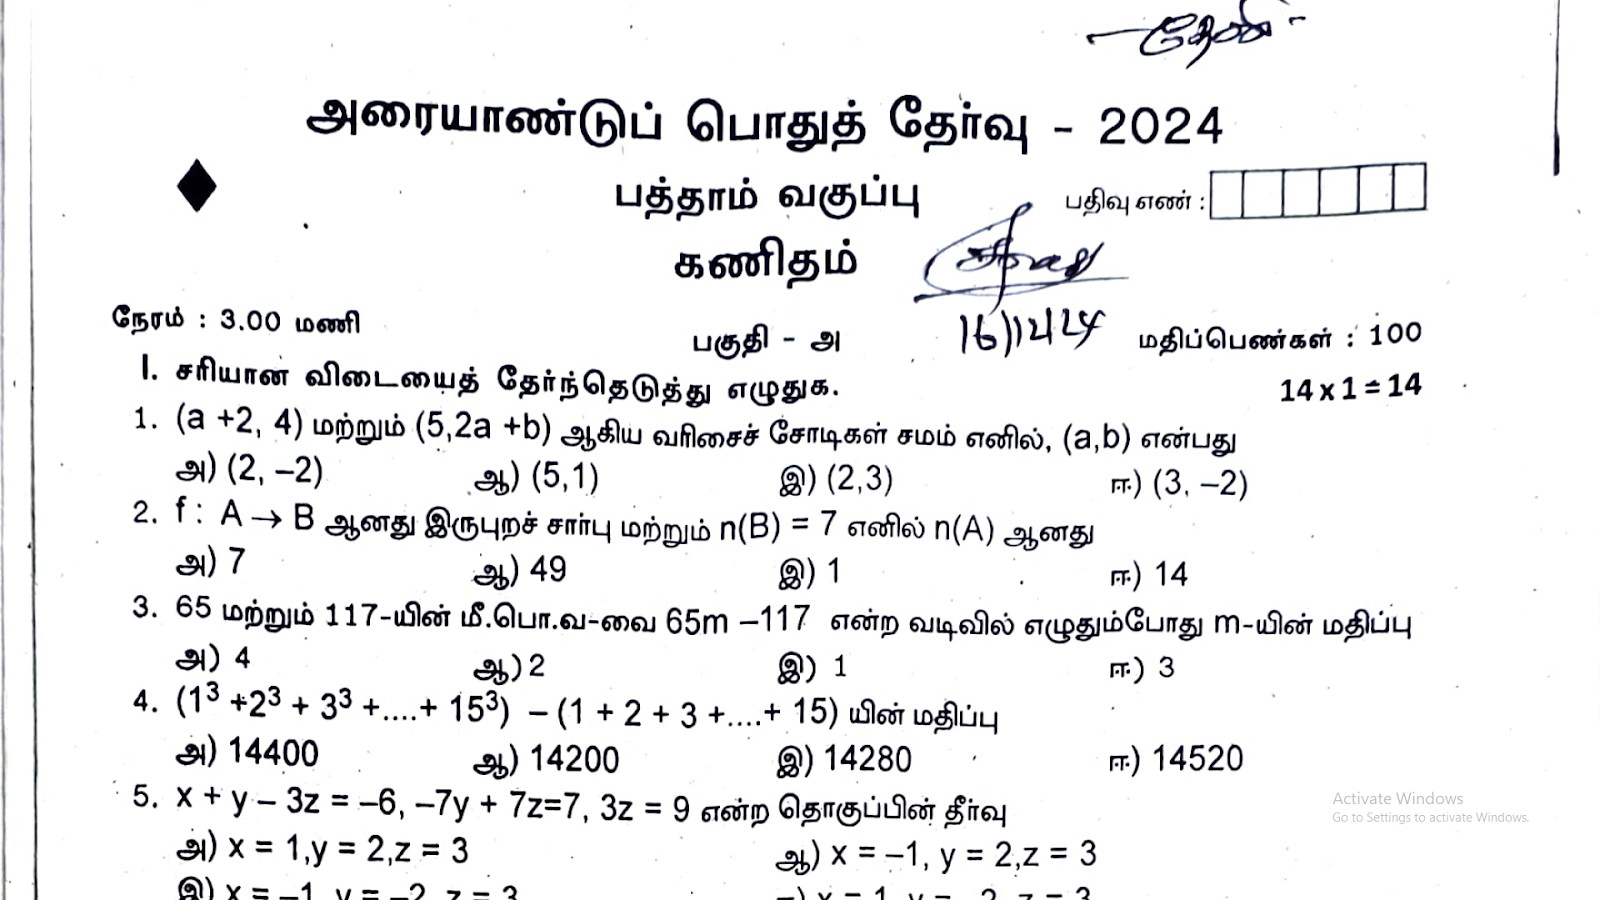 தேனி
அரையாண்டுப் பொதுத் தேர்வு - 2024
பத்தாம் வகுப்பு
பதிவு எண் :
கணிதம்
நேரம் : 3.00 மணி
16/12/24
பகுதி - அ
மதிப்பெண்கள் : 100
I. சரியான விடையைத் தேர்ந்தெடுத்து எழுதுக.
14 x 1 = 14
1. (a +2, 4) மற்றும் (5,2a +b) ஆகிய வரிசைச் சோடிகள் சமம் எனில், (a,b) என்பது
அ) (2, –2) ஆ) (5,1) இ) (2,3) ஈ) (3, –2)
2. f : A → B ஆனது இருபுறச் சார்பு மற்றும் n(B) = 7 எனில் n(A) ஆனது
அ) 7 ஆ) 49 இ) 1 ஈ) 14
3. 65 மற்றும் 117-யின் மீ.பொ.வ-வை 65m –117 என்ற வடிவில் எழுதும்போது m-யின் மதிப்பு
அ) 4 ஆ) 2 இ) 1 ஈ) 3
4. (1³ +2³ + 3³ +....+ 15³) – (1 + 2 + 3 +....+ 15) யின் மதிப்பு
அ) 14400 ஆ) 14200 இ) 14280 ஈ) 14520
5. x + y – 3z = –6, –7y + 7z=7, 3z = 9 என்ற தொகுப்பின் தீர்வு
Activate Windows
Go to Settings to activate Windows.
அ) x = 1,y = 2,z = 3 ஆ) x = –1, y = 2,z = 3
இ) x = –1, y = –2, z = 3